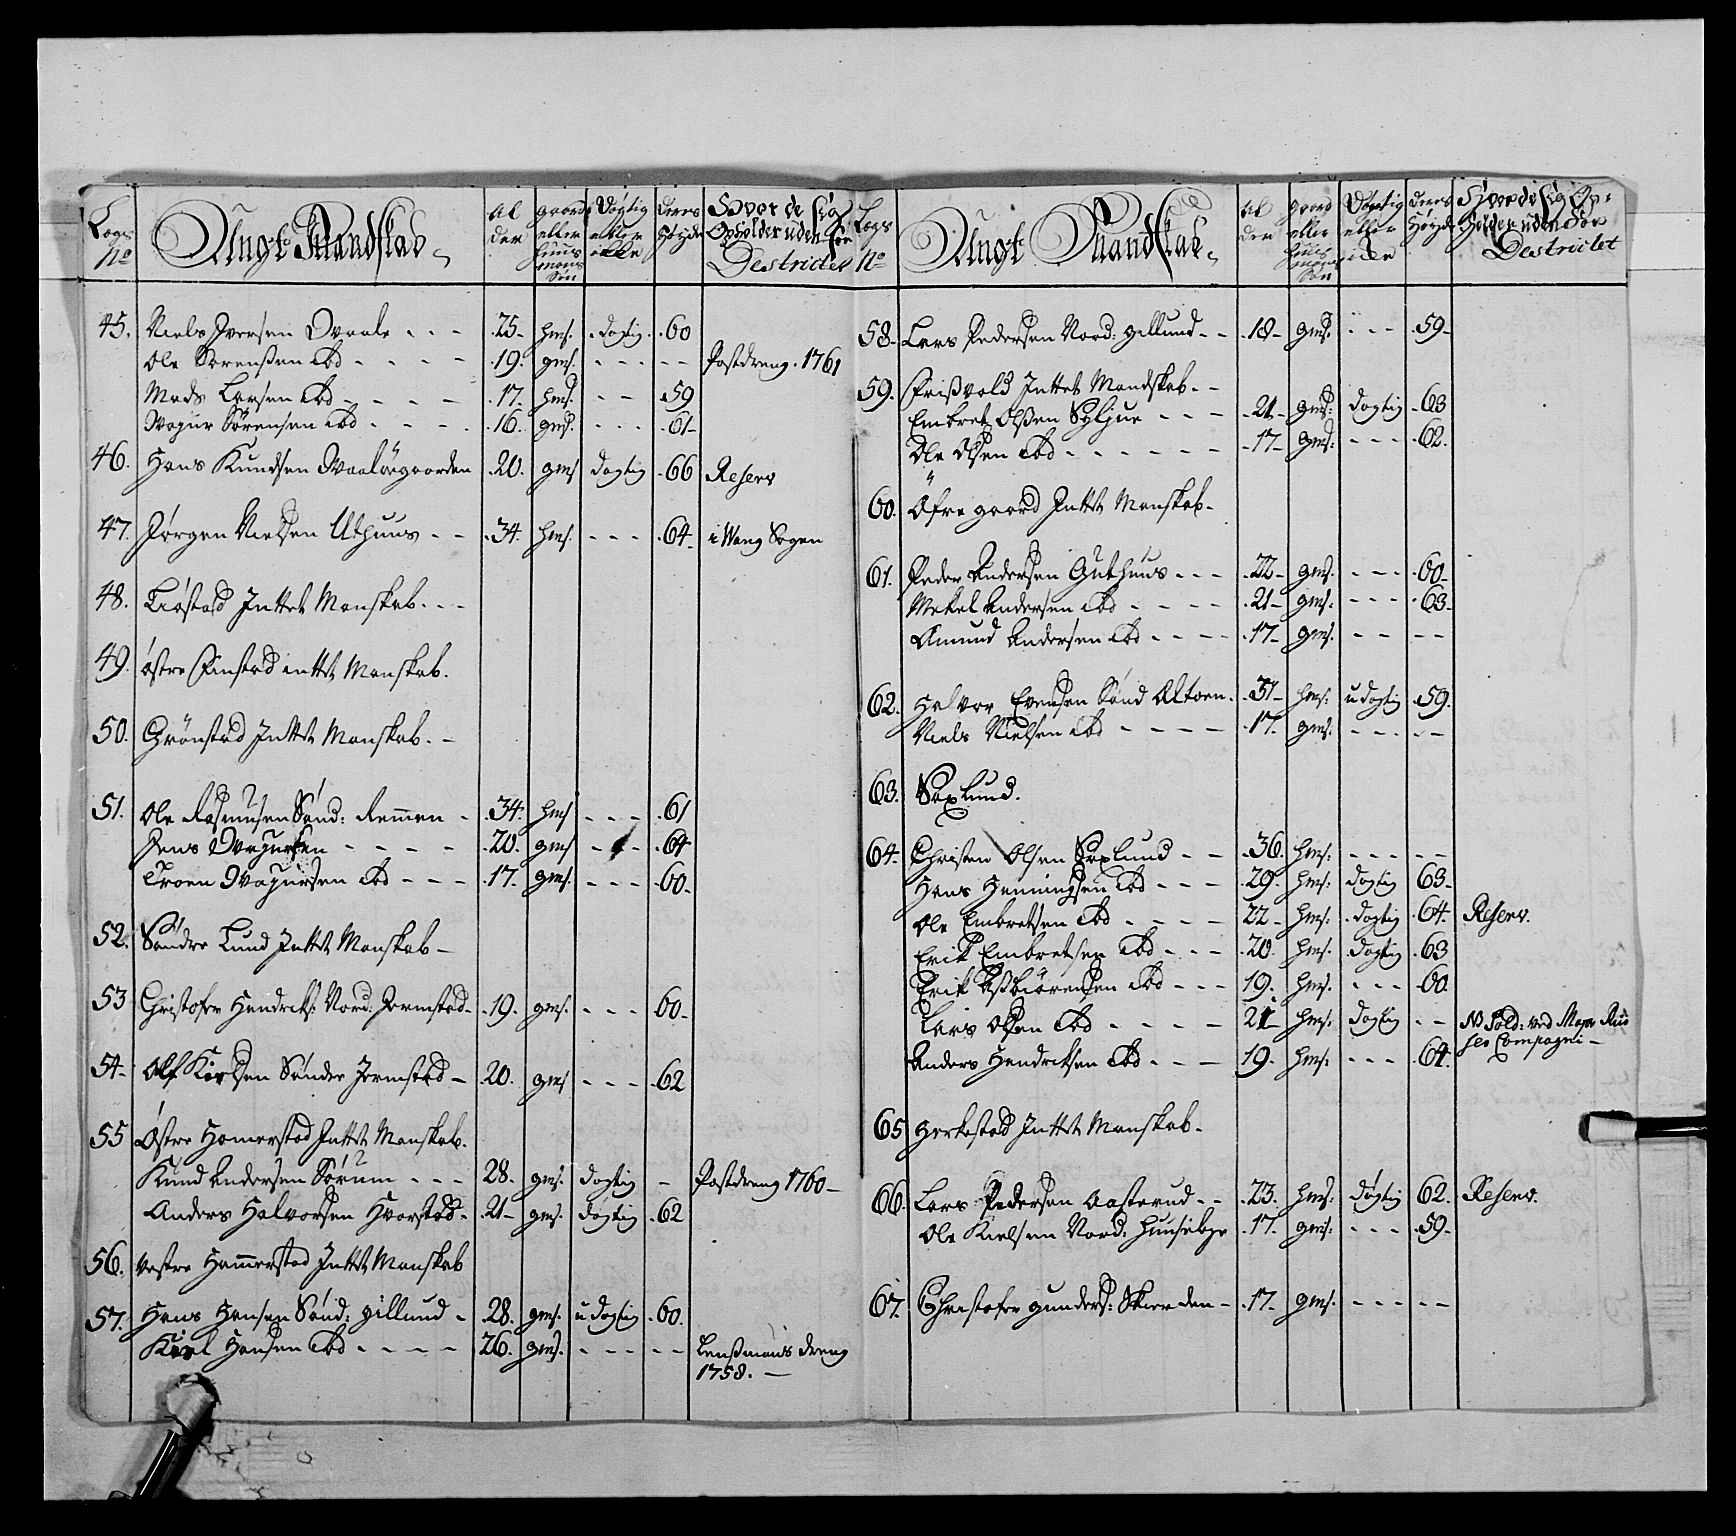 Legs No Ungt Mandskab Al der gaards eller huus mans Søn Døgtig eller ikke deres Høyde Hvor de Sig Opholder uden for Destrictet
45. Niels Iversen Ovaale - - - 25- hms. dogtig 60
Ole Sørensen ibd - - - - 19. gms. - - - - - Postdreng. 1761
Mads Larsen ibd - - - - 17. hms. - - 59
Sørensen ibd - - - - 16. gms. - - - 61-
46. Hans Knudsen Ovaaløegaarden 20. gms dogtig 66 Reserv
47. Jørgen Nielsen Uthuus - - 34. hms. - - - 64- i Wang Sogen
48. Intet Manskab. - -
49. østre Finstad intet Manskab.
50. Grönstad Intet Manskab. -
51. Ole Rasmusen Sönd: Remmen - 34. hms - - - 61
Jens - - - - 20. gms - - - 64
Troen ibd - - - 17. gms. - - - 60.
52. Søndre Lund Intet Manskab -
53 Christofer Hendriks: Nord: Jermstad - 19. gms. - - - 60-
54- Olf Søndre Jermstad - 20. gms - - - 62
55 Østre Hamerstad Intet Manskab.
Knud Andersen Sørum - - - 28. gms. dogtig - Postdreng 1760-
Anders Halvorsen Hvorstad - 21- gms. døgtig 62
56. Vestre Hamerstad Intet Manskab
57. Hans Hansen Sönd: gillund - 28. gms. udogtig 60.
Kiel Hansen ibd - - - - 26. gms. - - - - - Lensmans dreng
1758. -
Legs No Ungt Mandskab Al der gaard eller huus mans Søn Døgtig eller icke deres Høyde Hvor de Sig Op-holder uden for Destrictet
58- Lars Pedersen Nord: gillund - - 18- gms. - - - 59-
59. Frisvold Intet Mandskab. - -
Embret Olsen Syljue - - - 21- gms: dogtig 63
Ole Olsen ibd - - - - - - 17- gms: - - - 62.
60. Öfre gaard Intet Manskab.
61. Peder Andersen Guthuus - - - 22- gms. - - - 60-
Mekel Andersen ibd - - - - 21- gms. - - - 63-
Amund Andersen ibd - - - - 17- gms. - - - -
62. Halvor Evensen Sönd Altoen. 31- hms: udogtig 59.
Niels Nielsen ibd - - - - 17. gms. - - - - -
63. Saxlund.
64. Christen Olsen Saxlund - - 36. hms. - - - - -
Hans Henningsen ibd - - - 29. hms: dogtig 63-
Ole Embretsen ibd - - - - 22- hms: dogtig 64. Reserv.
Erik Embretsen ibd - - - 20. hms. dogtig 63
Erik Asbiörensen ibd - - - 19. hms. - - - 60
Lars Olsen ibd - - - - 21 hms. dogtig - - NB Sold: ved Major
ses Compagni -
Anders Hendriksen ibd - - - 19. hms. - - - 64.
65 gorkestad Intet Manskab.
66. Lars Pedersen Aasterud - - 23. hms. døgtig 62. Reserv.
Ole Kielsen Nord: huusebye 17. gms: - - - 59-
67. Christofer gunders: Skierden - 17- gms. - - - - -